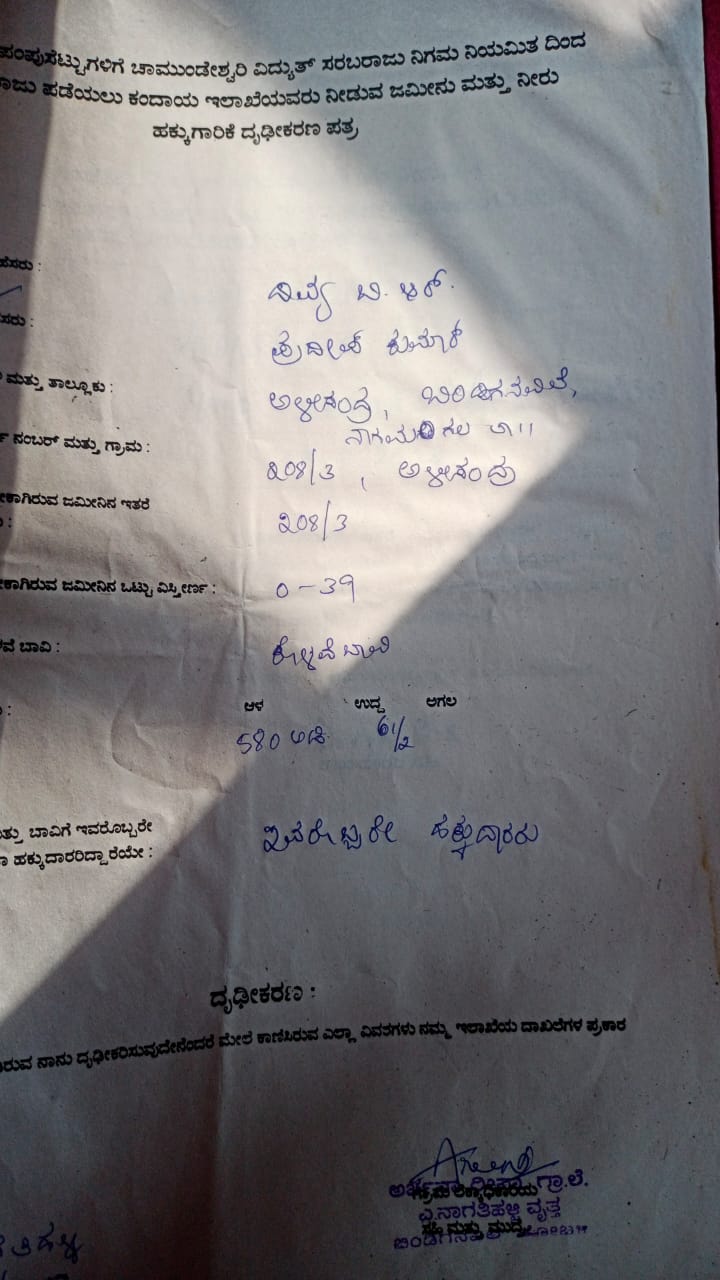 ಪಂಪುಸೆಟ್ಟುಗಳಿಗೆ ಚಾಮುಂಡೇಶ್ವರಿ ವಿದ್ಯುತ್ ಸರಬರಾಜು ನಿಗಮ ನಿಯಮಿತ ದಿಂದ
ರಾಜು ಪಡೆಯಲು ಕಂದಾಯ ಇಲಾಖೆಯವರು ನೀಡುವ ಜಮೀನು ಮತ್ತು ನೀರು
ಹಕ್ಕುಗಾರಿಕೆ ದೃಢೀಕರಣ ಪತ್ರ
ಹೆಸರು : ದಿವ್ಯ ಬಿ. ಆರ್.
ಸರು : ಪ್ರದೀಪ್ ಕುಮಾರ್
ಮತ್ತು ತಾಲ್ಲೂಕು : ಅಳೀಸಂದ್ರ, ಬಿಂಡಿಗನವಿಲೆ,
ನಾಗಮಂಗಲ ತಾ॥
ನಂಬರ್ ಮತ್ತು ಗ್ರಾಮ : 208/3, ಅಳೀಸಂದ್ರ
ಕಾಗಿರುವ ಜಮೀನಿನ ಇತರೆ
: 208/3
ಕಾಗಿರುವ ಜಮೀನಿನ ಒಟ್ಟು ವಿಸ್ತೀರ್ಣ : 0-39
ವೆ ಬಾವಿ : ಕೊಳವೆ ಬಾವಿ
: ಆಳ ಉದ್ದ ಅಗಲ
580 ಅಡಿ 6 1/2
ತ್ತು ಬಾವಿಗೆ ಇವರೊಬ್ಬರೇ
ಹಕ್ಕುದಾರರಿದ್ದಾರೆಯೇ : ಇವರೊಬ್ಬರೇ ಹಕ್ಕುದಾರರು
ದೃಢೀಕರಣ :
ರುವ ನಾನು ದೃಢೀಕರಿಸುವುದೇನೆಂದರೆ ಮೇಲೆ ಕಾಣಿಸಿರುವ ಎಲ್ಲಾ ವಿವರಗಳು ನಮ್ಮ ಇಲಾಖೆಯ ದಾಖಲೆಗಳ ಪ್ರಕಾರ
ಗ್ರಾ.ಲೆ.
ಎ.ನಾಗತಿಹಳ್ಳಿ ವೃತ್ತ
ಸಹಿ ಮತ್ತು ಮುದ್ರೆ